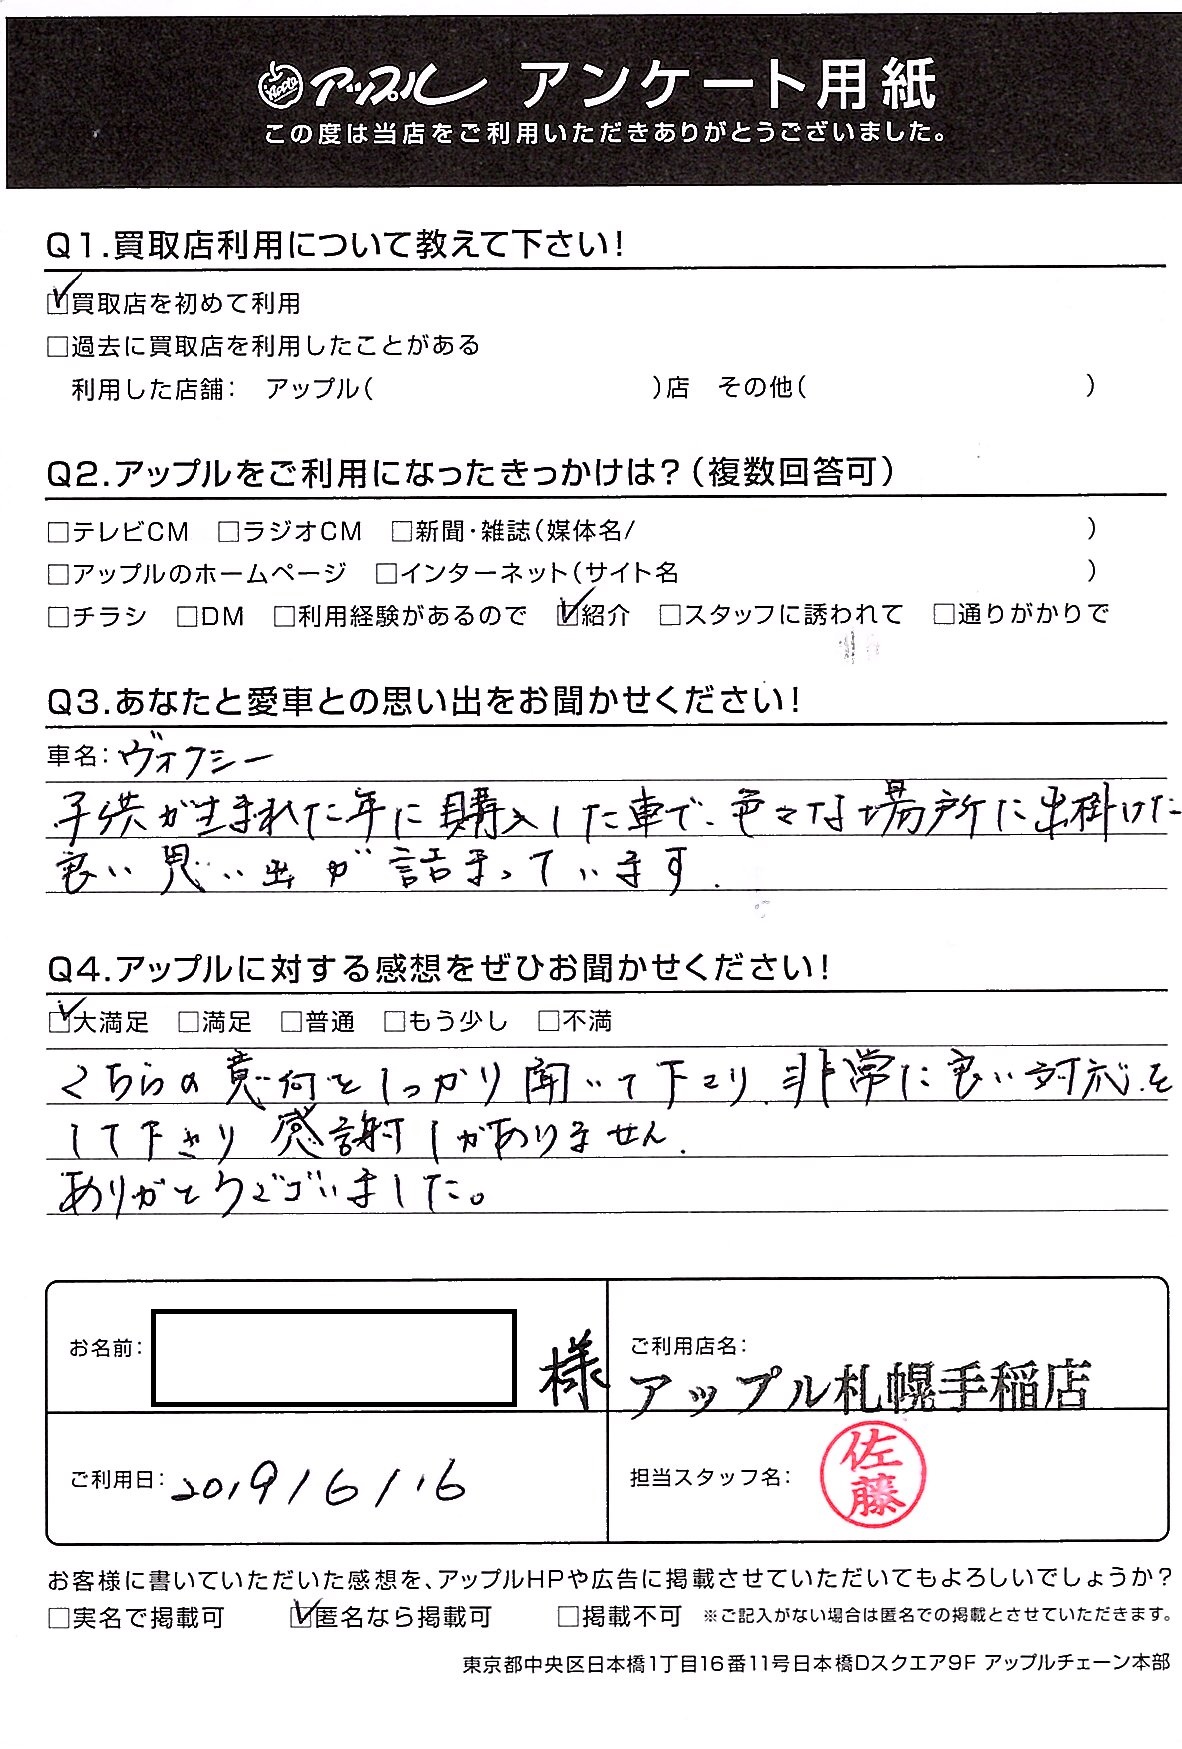 Apple アップル アンケート用紙
この度は当店をご利用いただきありがとうございました。
Q1.買取店利用について教えて下さい!
☑買取店を初めて利用
□過去に買取店を利用したことがある
利用した店舗: アップル( )店 その他( )
Q2.アップルをご利用になったきっかけは?(複数回答可)
□テレビCM □ラジオCM □新聞・雑誌(媒体名/ )
□アップルのホームページ □インターネット(サイト名 )
□チラシ □DM □利用経験があるので ☑紹介 □スタッフに誘われて □通りがかりで
Q3.あなたと愛車との思い出をお聞かせください!
車名:ヴォクシー
子供が生まれた年に購入した車で、色々な場所に出掛けた
良い思い出が詰まっています.
Q4.アップルに対する感想をぜひお聞かせください!
☑大満足 □満足 □普通 □もう少し □不満
こちらの意向をしっかり聞いて下さり、非常に良い対応を
して下さり感謝しかありません.
ありがとうございました。
お名前: 様
ご利用店名:
アップル札幌手稲店
ご利用日:2019/6/16
担当スタッフ名: 佐藤
お客様に書いていただいた感想を、アップルHPや広告に掲載させていただいてもよろしいでしょうか?
□実名で掲載可 ☑匿名なら掲載可 □掲載不可 ※ご記入がない場合は匿名での掲載とさせていただきます。
東京都中央区日本橋1丁目16番11号日本橋Dスクエア9F アップルチェーン本部